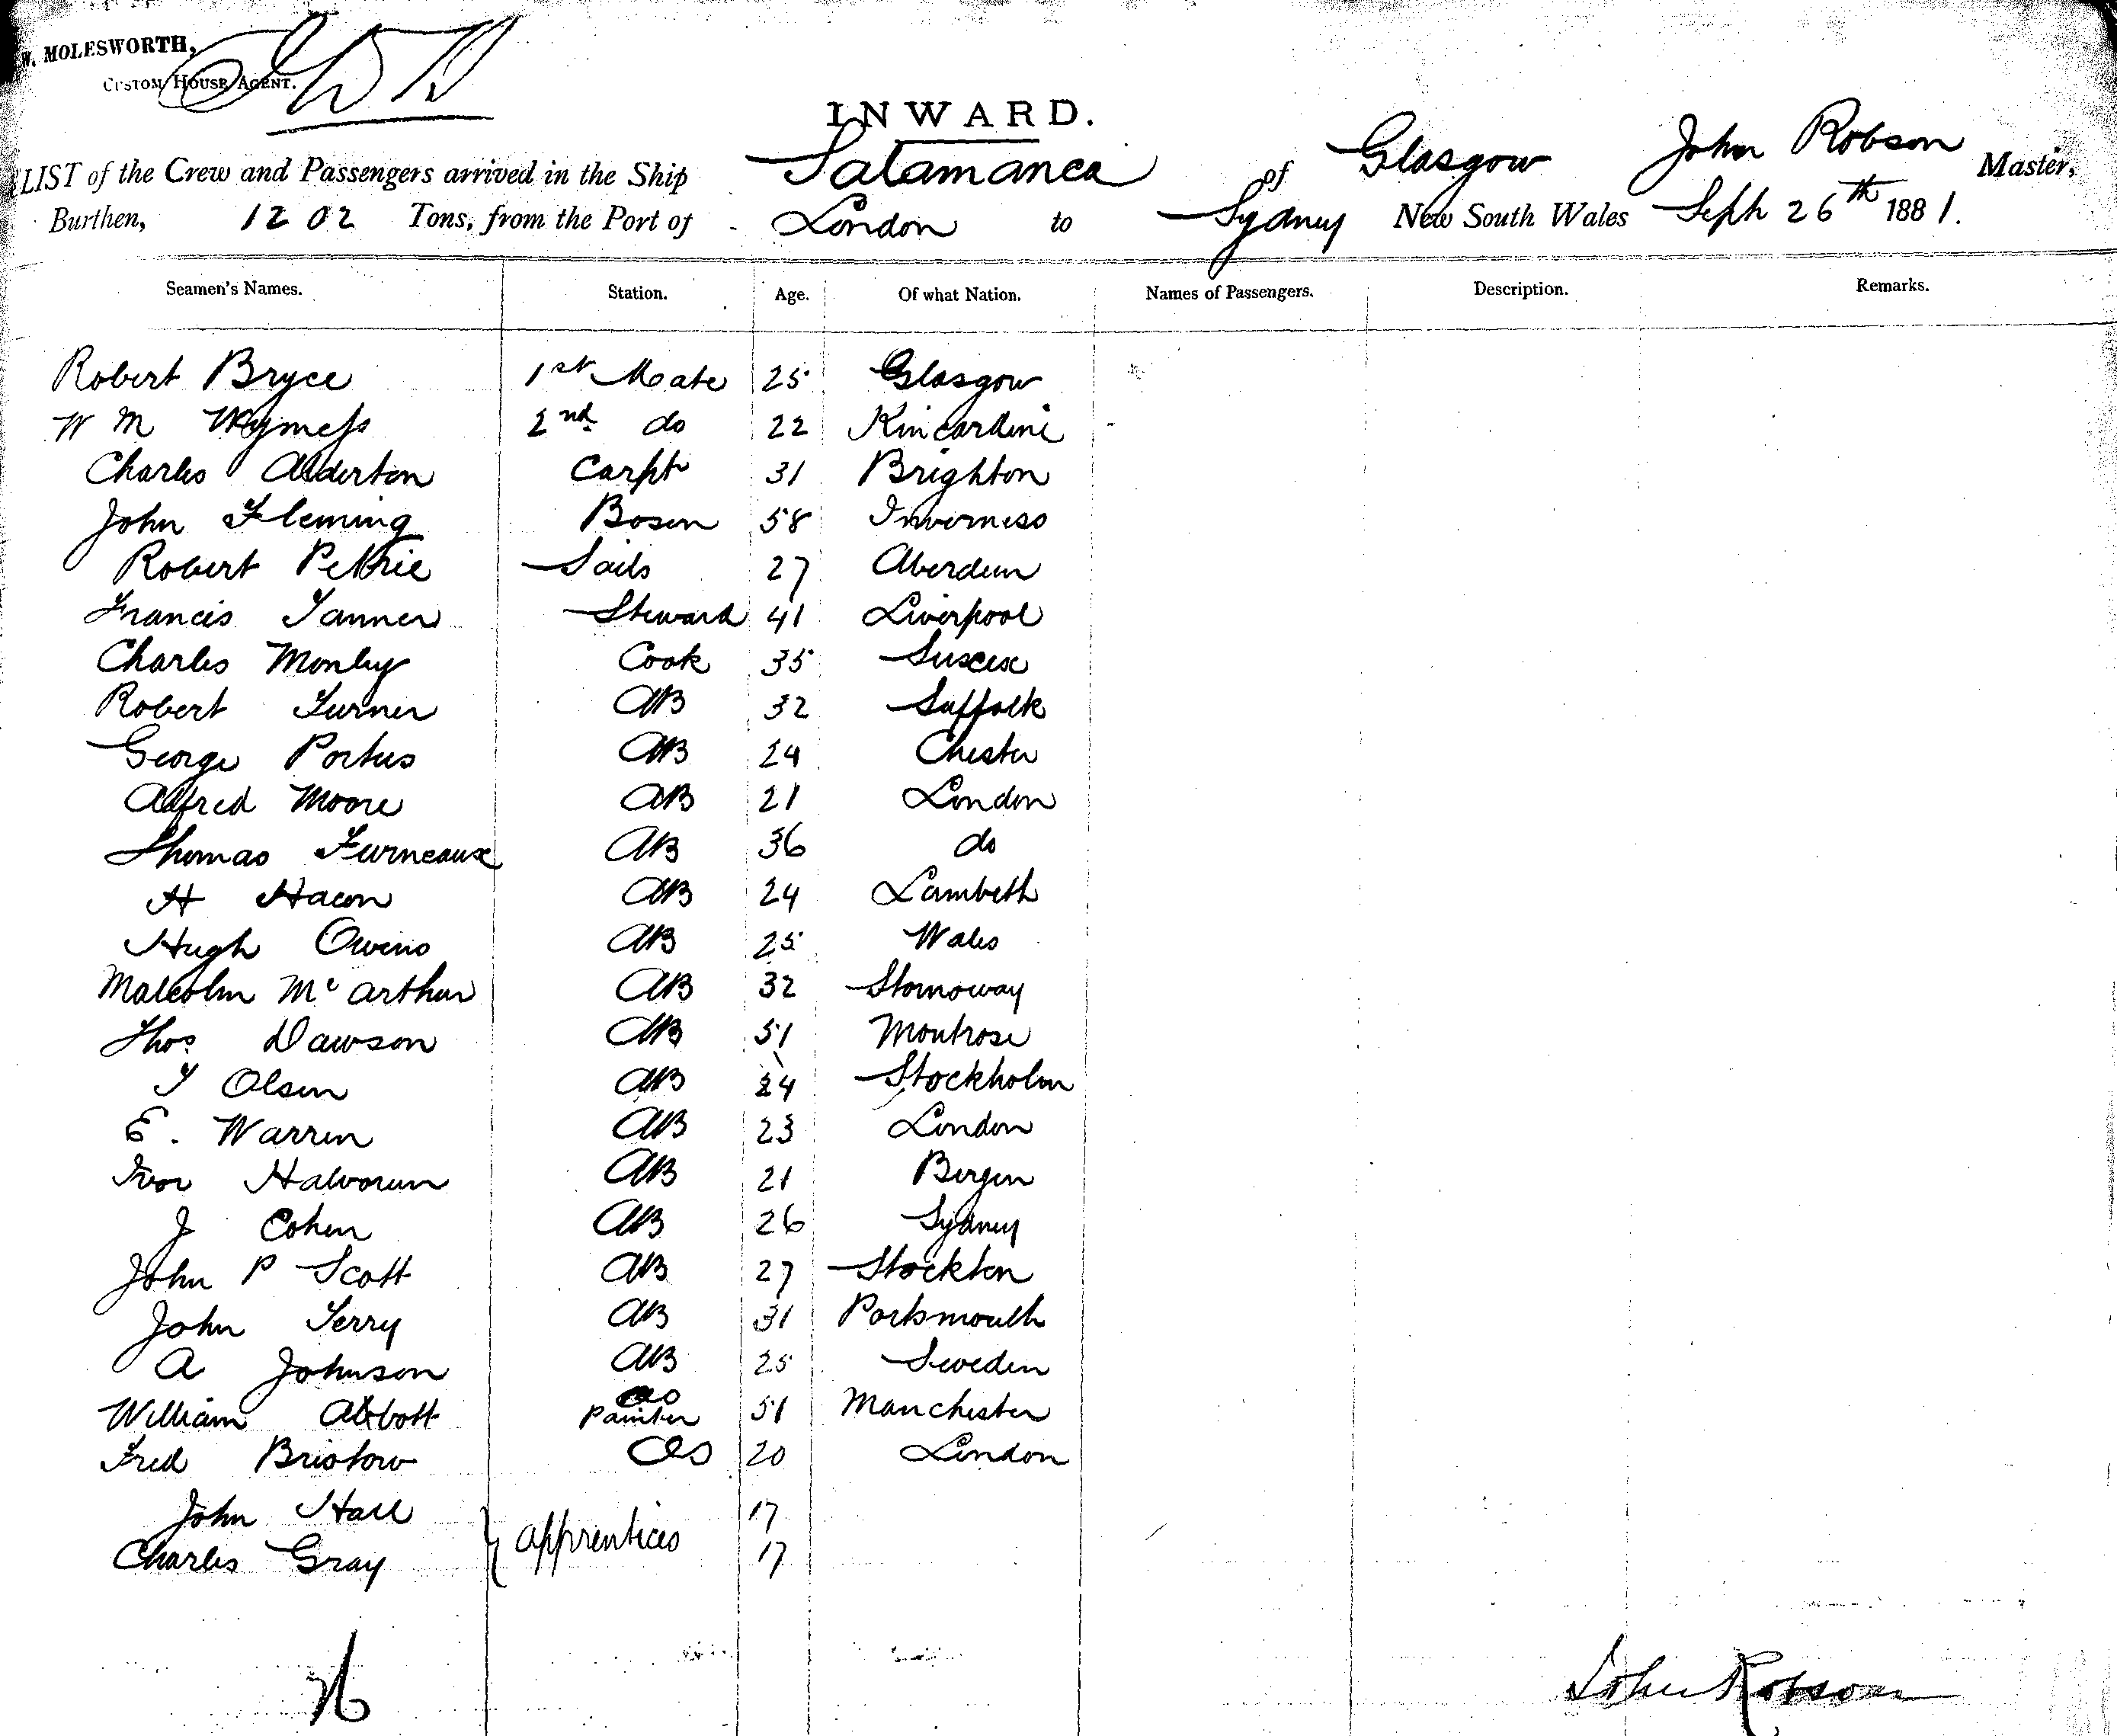 W. MOLESWORTH,
CUSTOM HOUSE AGENT.
INWARD.
LIST of the Crew and Passengers arrived in the Ship Salamanca of Glasgow John Robson Master,
Burthen, 1202 Tons, from the Port of London to Sydney New South Wales Septr 26th 1881.
Seamen's Names. Station. Age. Of what Nation. Names of Passengers. Description. Remarks.
Robert Bryce 1st Mate 25 Glasgow
W M Wymess 2nd do 22 Kincardine
Charles Alderton Carptr 31 Brighton
John Fleming Bosen 58 Inverness
Robert Petrie Sails 27 Aberdeen
Francis Tanner Steward 41 Liverpool
Charles Monley Cook 35 Sussex
Robert Turner AB 32 Suffolk
George Portus AB 24 Chester
Alfred Moore AB 21 London
Thomas Furneaux AB 36 do
H Hacon AB 24 Lambeth
Hugh Owens AB 25 Wales
Malcolm Mc arthur AB 32 Stornoway
Thos Dawson AB 51 Montrose
T Olsen AB 24 Stockholm
E. Warren AB 23 London
Ivor Halvorsen AB 21 Bergen
J Cohen AB 26 Sydney
John P Scott AB 27 Stockton
John Terry AB 31 Portsmouth
A Johnson AB 25 Sweden
William Abbott Painter 51 Manchester
Fred Bristow OS 20 London
John Hall } apprentices 17
Charles Gray 17
26
John Robson